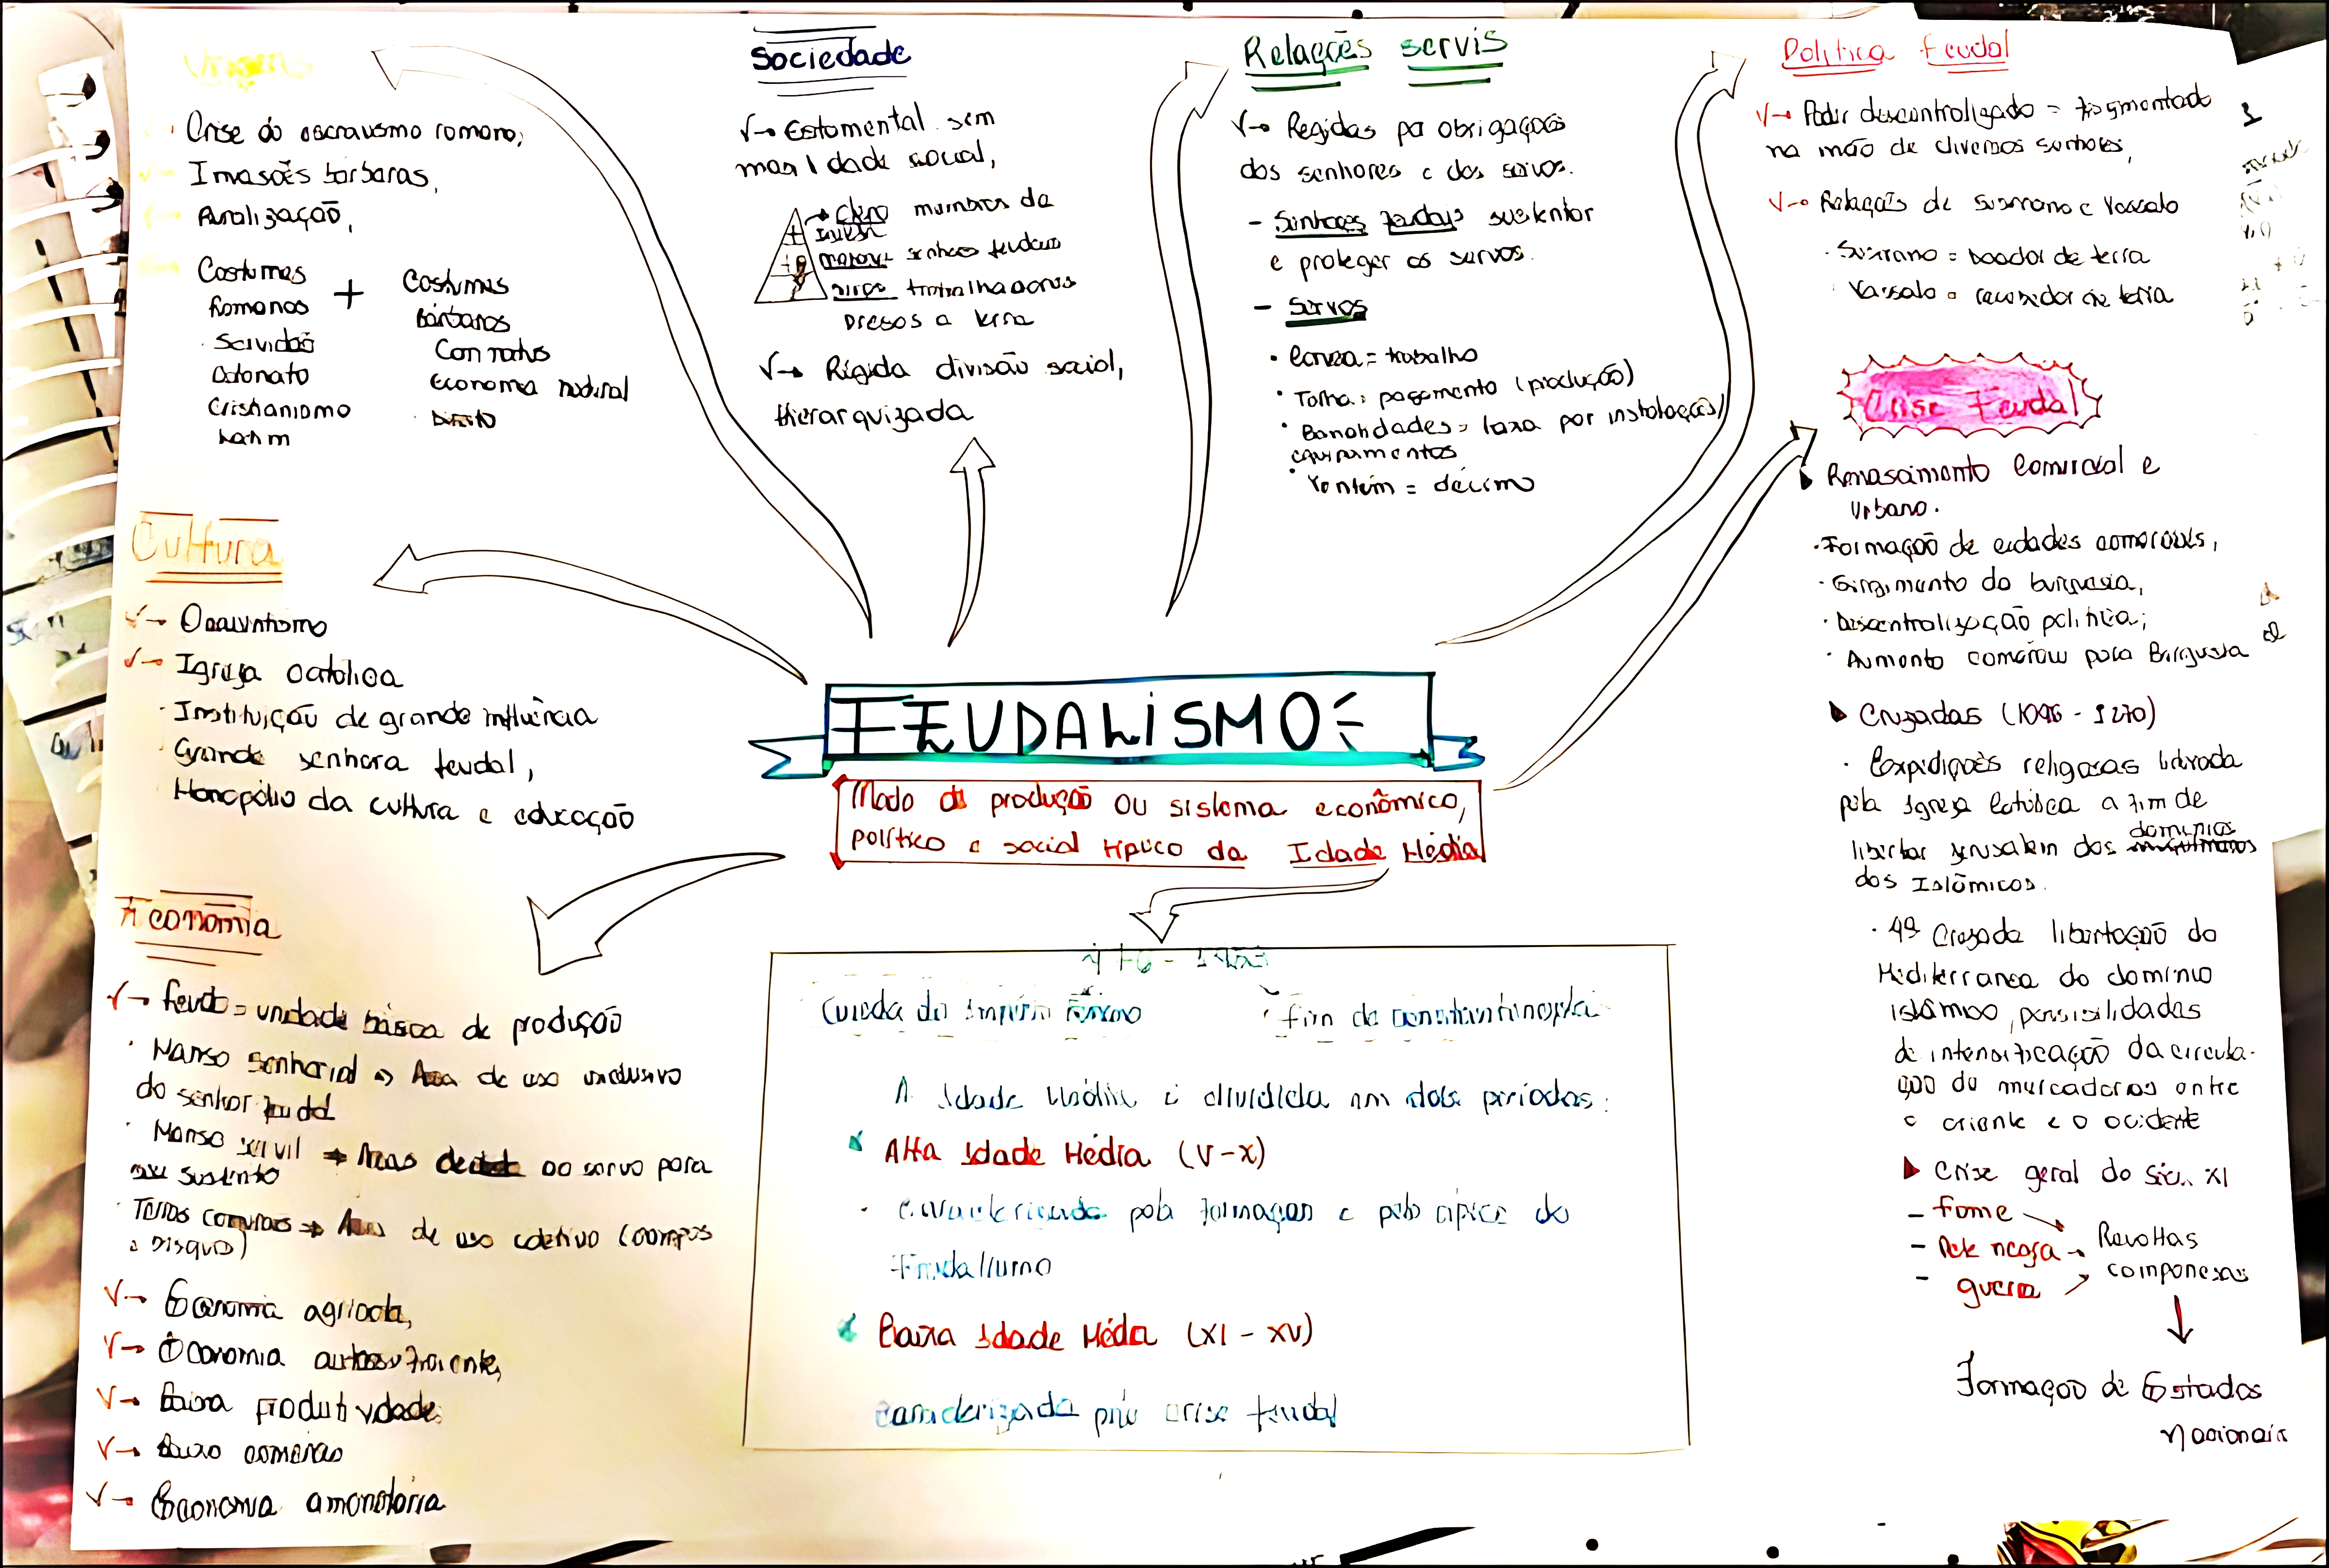 Origens
Crise do escravismo romano,
Invasões bárbaras,
Ruralização,
Costumes
Romanos
+
Costumes
Bárbaros
Servidão
Colonato
Cristianismo
Latim
Comitatus
Economia natural
Direito
Sociedade
Estamental sem
mobilidade social,
Clero membros da
Igreja
senhores feudais
servos trabalhadores
presos a terra
Rígida divisão social,
Hierarquizada
Relações servis
Regidas por obrigações
dos senhores e dos servos.
- Senhores feudais sustentar
e proteger os servos.
- Servos
• Corveia = trabalho
• Talha = pagamento (produção)
• Banalidades = taxa por instalações/
equipamentos
• = décimo
Política Feudal
Poder descentralizado = fragmentado
na mão de diversos senhores,
Relações de Suserano e Vassalo
· Suserano = doador de terra
· Vassalo = recebedor de terra
Crise Feudal
Renascimento Comercial e
Urbano.
· Formação de cidades comerciais,
· Surgimento da burguesia,
· Descentralização política;
· Aumento comércio para Burguesia
Cruzadas (1096 - 1270)
· Expedições religiosas liderada
pela Igreja Católica a fim de
libertar Jerusalém dos domínios
dos Islâmicos.
· 4ª Cruzada libertação do
Mediterrâneo do domínio
islâmico,
de intensificação da circula-
ção de mercadorias entre
o oriente e o ocidente
Crise geral do séc. XI
- fome
- Peste negra
- guerra
Revoltas
camponesas
Formação de Estados
Nacionais
Cultura
Igreja católica
· Instituição de grande influência
· Grande senhora feudal,
Monopólio da cultura e educação
FEUDALISMO
Modo de produção ou sistema econômico,
político e social típico da Idade Média
Economia
feudo = unidade básica de produção
· Manso senhorial => Área de uso exclusivo
do senhor feudal
· Manso servil => Áreas ao servo para
seu sustento
· Terras comunais => Área de uso coletivo (campos
e bosques)
Economia agrícola,
Economia autossuficiente,
Baixa produtividade
Baixo comércio
Economia amonetária
476 - 1453
Queda do Império Romano
fim de constantinopla
A Idade Média é dividida em dois períodos:
Alta Idade Média (V-X)
· Caracterizada pela formação e pelo ápice do
Feudalismo
Baixa Idade Média (XI - XV)
caracterizada pela crise feudal